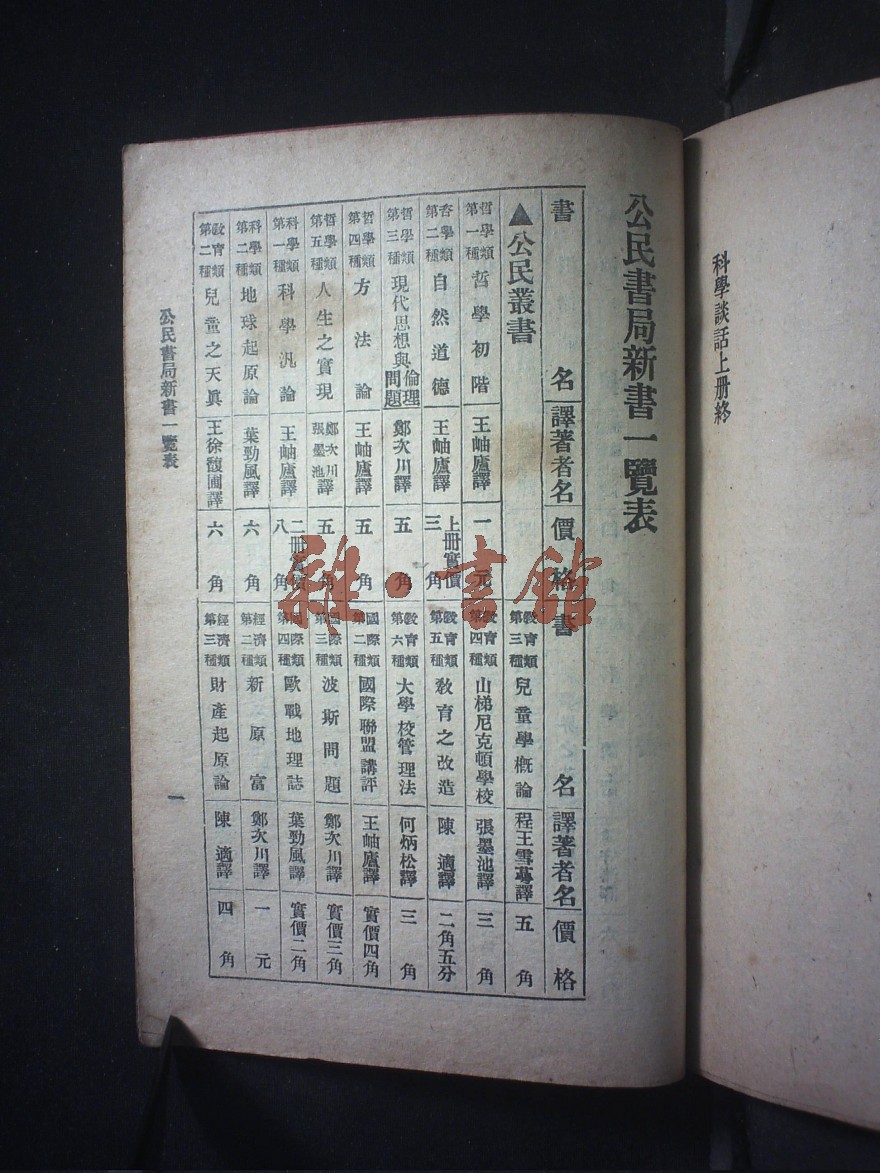 科學談話上册終
公民書局新書一覽表
書名 譯著者名 價格
▲公民叢書
哲學類第一種 哲學初階 王岫廬譯 一元
哲學類第二種 自然道德 王岫廬譯 上册實價三角
哲學類第三種 現代思想與倫理問題 鄭次川譯 五角
哲學類第四種 方法論 王岫廬譯 五角
哲學類第五種 人生之實現 鄭次川張墨池譯 五角
科學類第一種 科學汎論 王岫廬譯 二册實價八角
科學類第二種 地球起原論 葉勁風譯 六角
敎育類第二種 兒童之天眞 王徐馥圃譯 六角
書名 譯著者名 價格
敎育類第三種 兒童學概論 程王雪蕚譯 五角
敎育類第四種 山梯尼克頓學校 張墨池譯 三角
敎育類第五種 敎育之改造 陳適譯 二角五分
敎育類第六種 大學校管理法 何炳松譯 三角
國際類第二種 國際聯盟講評 王岫廬譯 實價四角
國際類第三種 波斯問題 鄭次川譯 實價三角
國際類第四種 歐戰地理誌 葉勁風譯 實價二角
經濟類第二種 新原富 鄭次川譯 一元
經濟類第三種 財產起原論 陳適譯 四角
公民書局新書一覽表
一
雜·書館